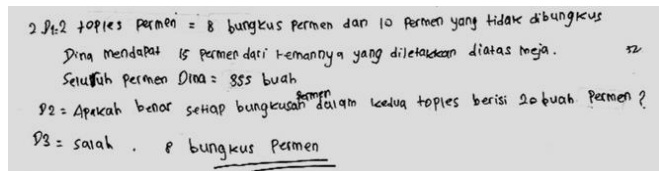 2 P1:2 toples permen = 8 bungkus permen dan 10 permen yang tidak dibungkus
Dina mendapat 15 permen dari temannya yang diletakkan diatas meja. 32
Seluruh permen Dina = 855 buah
P2 = Apakah benar setiap bungkusan permen dalam kedua toples berisi 20 buah permen?
P3 = salah. 8 bungkus permen